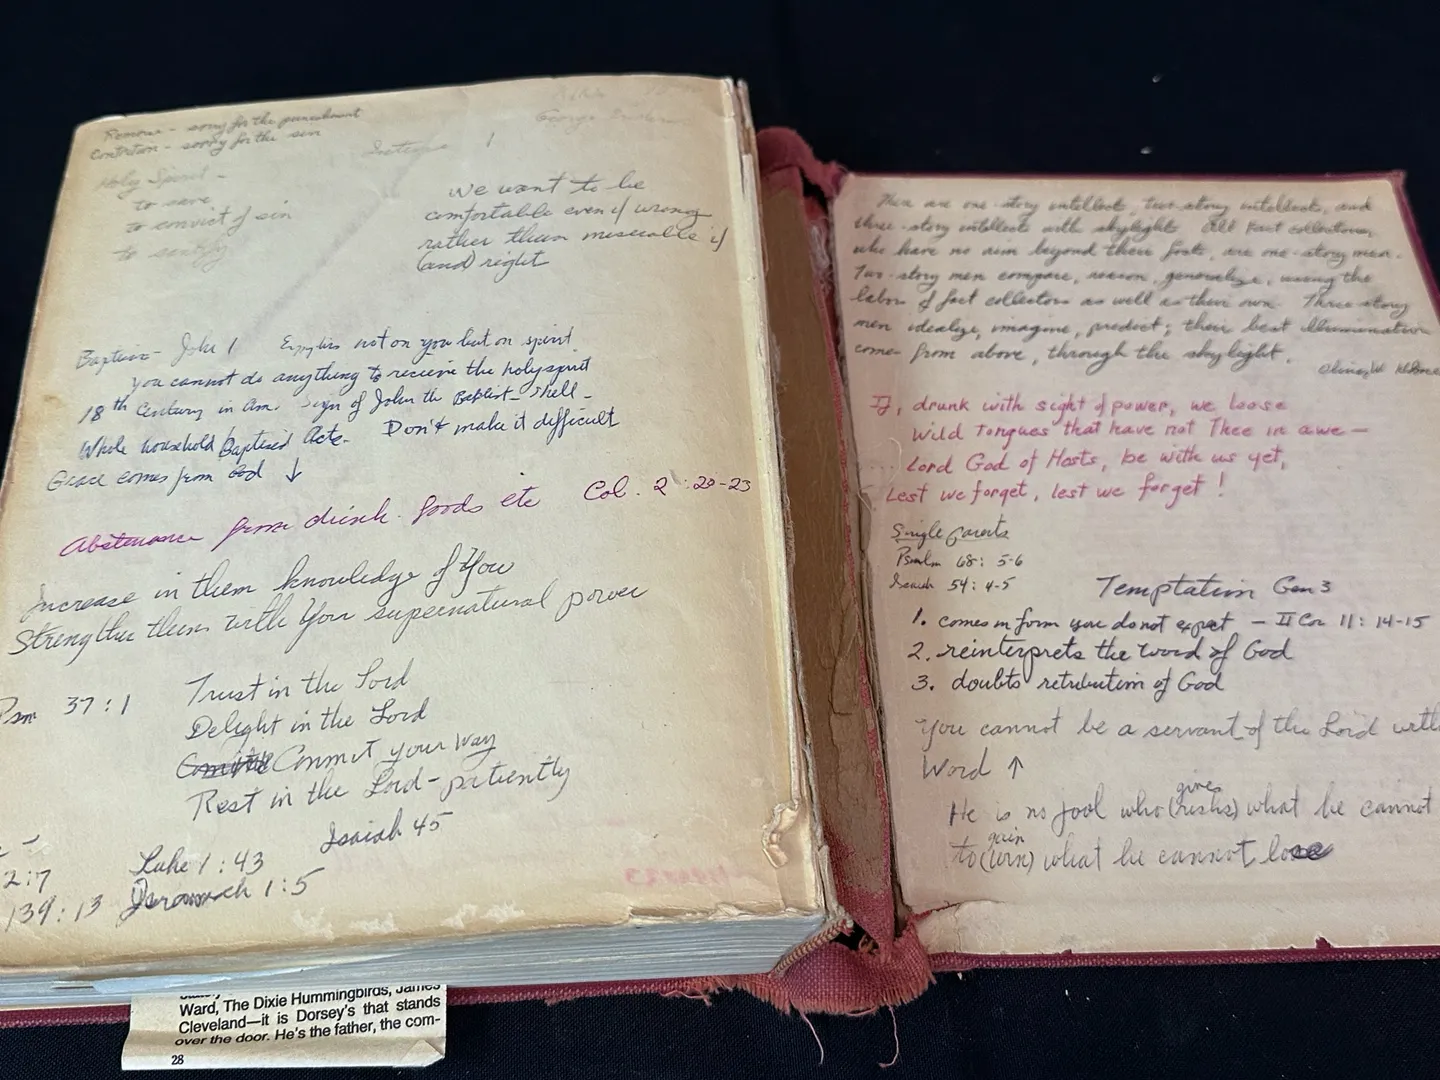 Remorse - sorry for the punishment
Contrition - sorry for the sin
Holy Spirit -
to save
to convict of sin
to sanctify
1
George
We want to be
comfortable even if wrong
rather than miserable if
(and) right
Baptism - John 1 Emphasis not on you but on spirit.
You cannot do anything to recieve the holy spirit
18th Century in Am. sign of John the Baptist - Shell -
Whole household Baptised Acts - Don't make it difficult
Grace comes from God ↓
Abstenance from drink foods etc Col. 2:20-23
Increase in them knowledge of You
Strengthen them with Your supernatural power
Psm 37:1 Trust in the Lord
Delight in the Lord
Commit your way
Rest in the Lord - patiently
Isaiah 45
2:7 Luke 1:43
139:13 Jeremiah 1:5
Ward, The Dixie Hummingbirds, James
Cleveland—it is Dorsey's that stands
over the door. He's the father, the com-
28
There are one-story intellects, two-story intellects, and
three-story intellects with skylights. All fact collectors,
who have no aim beyond their facts, are one-story men.
Two-story men compare, reason, generalize, using the
labors of fact collectors as well as their own. Three-story
men idealize, imagine, predict; their best illumination
comes from above, through the skylight.
Oliver W Holmes
If, drunk with sight of power, we loose
Wild Tongues that have not Thee in awe —
... Lord God of Hosts, be with us yet,
Lest we forget, lest we forget!
Single parents
Psalm 68: 5-6
Isaiah 54: 4-5
Temptation Gen 3
1. comes in form you do not expect - II Cor 11: 14-15
2. reinterprets the word of God
3. doubts retribution of God
You cannot be a servant of the Lord
Word ↑
gives
He is no fool who (risks) what he cannot
gain
to (win) what he cannot lose